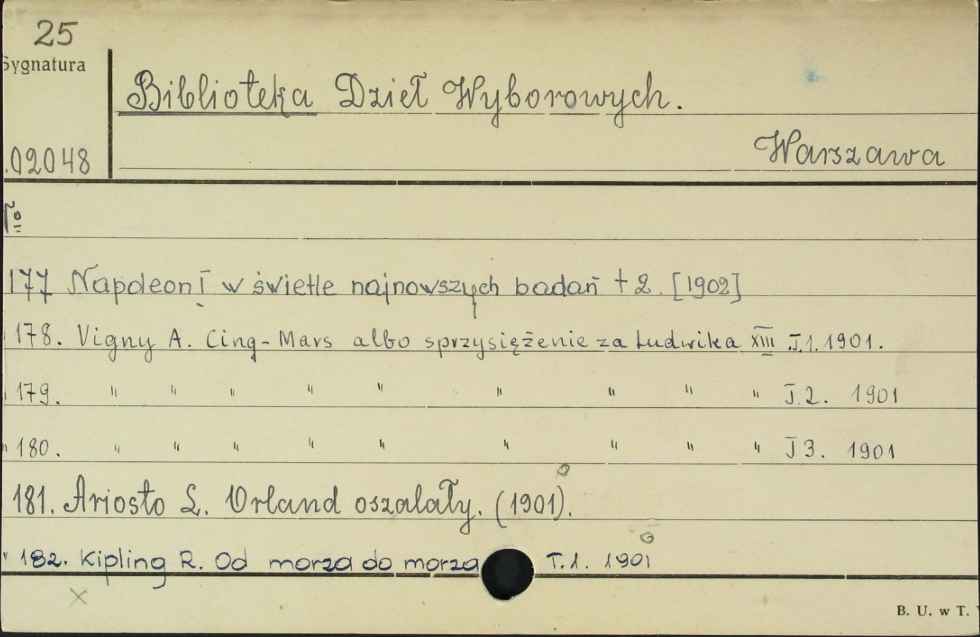 25
Sygnatura
Biblioteka Dzieł Wyborowych.
.02048
Warszawa
Tom
177 Napoleon I w świetle najnowszych badań t 2. [1902]
178. Vigny A. Cinq-Mars albo sprzysiężenie za Ludwika XIII T.1. 1901.
" 179. " " " " " " " " " T.2. 1901
" 180. " " " " " " " " " T 3. 1901
181. Ariosto L. Orland oszalały. (1901).
" 182. Kipling R. Od morza do morza T.1. 1901
x
B. U. w T.